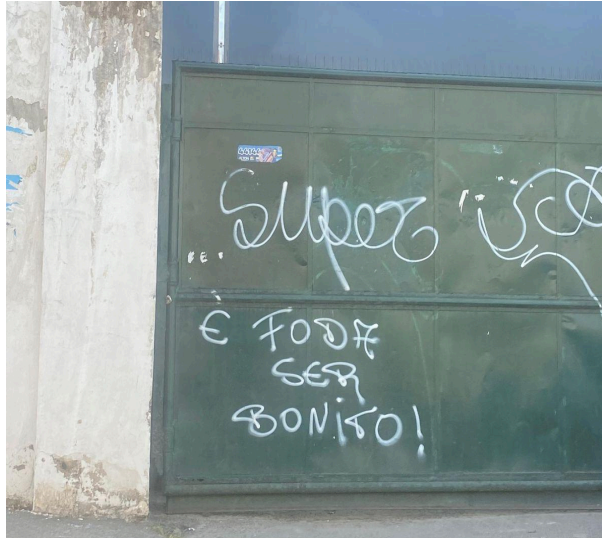 super
É FODA
SER
BONITO!